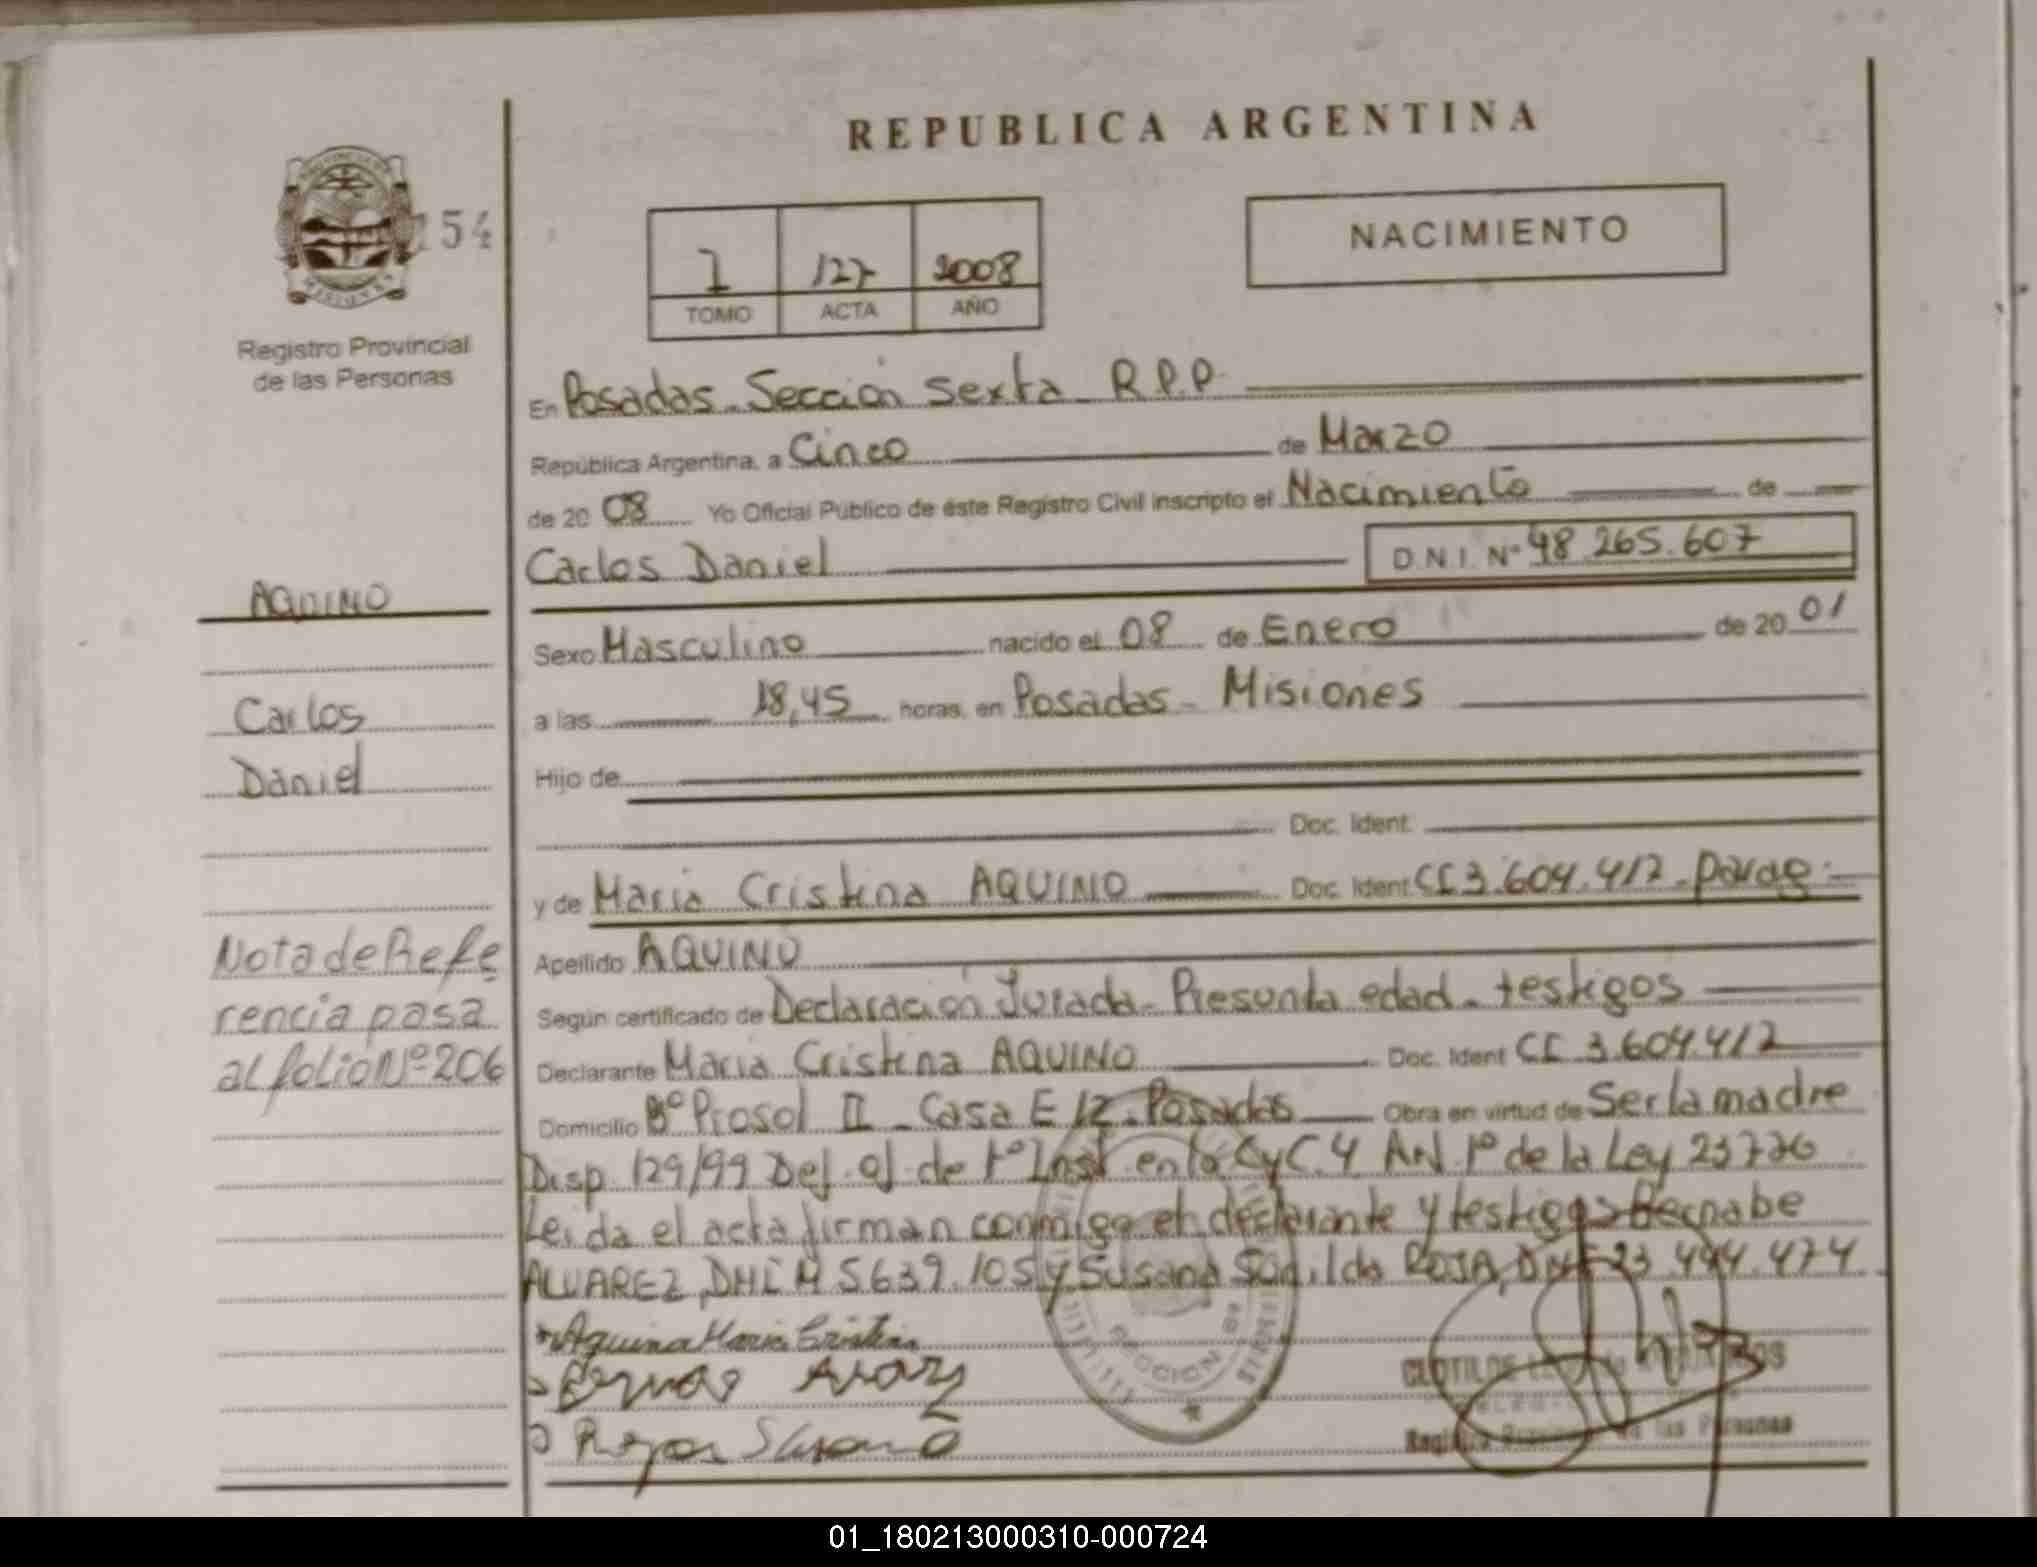 REPUBLICA ARGENTINA
NACIMIENTO
154
1 127 2008
TOMO ACTA AÑO
Registro Provincial
de las Personas
En Posadas - Sección Sexta - R.P.P
República Argentina, a Cinco de Marzo
de 20 08 Yo Oficial Público de éste Registro Civil inscripto el Nacimiento de
Carlos Daniel D.N.I. Nº 48.265.607
AQUINO
Sexo Masculino nacido el 08 de Enero de 20 01
Carlos
a las 18,45 horas, en Posadas - Misiones
Daniel
Hijo de
Doc. Ident.
y de Maria Cristina AQUINO Doc. Ident CI 3.604.412 - Parag.
Nota de Refe
rencia pasa
al folio Nº 206
Apellido AQUINO
Según certificado de Declaración Jurada - Presunta edad - testigos
Declarante Maria Cristina AQUINO Doc. Ident CI 3.604.412
Domicilio Bº Prosol II - Casa E 12 - Posadas Obra en virtud de Ser la madre
Disp. 129/99 Def. Of. de 1º Inst. en lo CyC. 4 Art. 1º de la Ley
Leida el acta firman conmigo el declarante y testigos Bernabe
ALVAREZ, DNI M 5639.105 y Susana ROJA, DNI 23.444.474
Aquino Maria Cristina
SECCION
MISIONES
Registro de las Personas
01_180213000310-000724